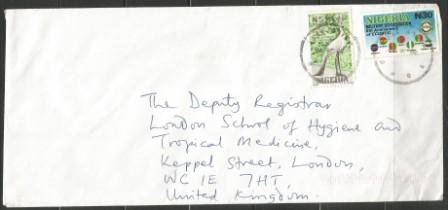 NIGERIA
NIGERIA
N30
The Deputy Registrar
London School of Hygiene and
Tropical Medicine,
Keppel Street, London,
WC 1E 7HT,
United Kingdom.